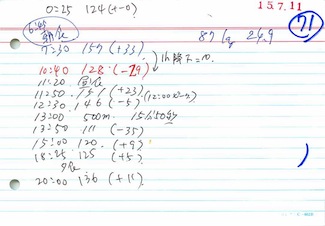 15.7.11
0:25 124(+-0)
71
6:45
朝食
87kg 24.9
7:30 157 (+33)
10:40 128 (-29) 1h降下=10.
11:20 昼食
11:50 151 (+23) (12:00
12:30 146 (-5)
13:00 500m 15分50秒
13:50 111 (-35)
15:00 120 (+9)
18:25 125 (+5)
夕食
20:00 136 (+11)